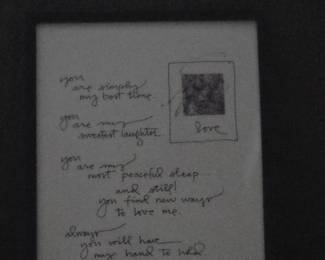 you
are simply
my best time.
you
are my
sweetest laughter.
you
are my
most peaceful sleep
and still!
you find new ways
to love me.
always
you will have
my hand to hold
love